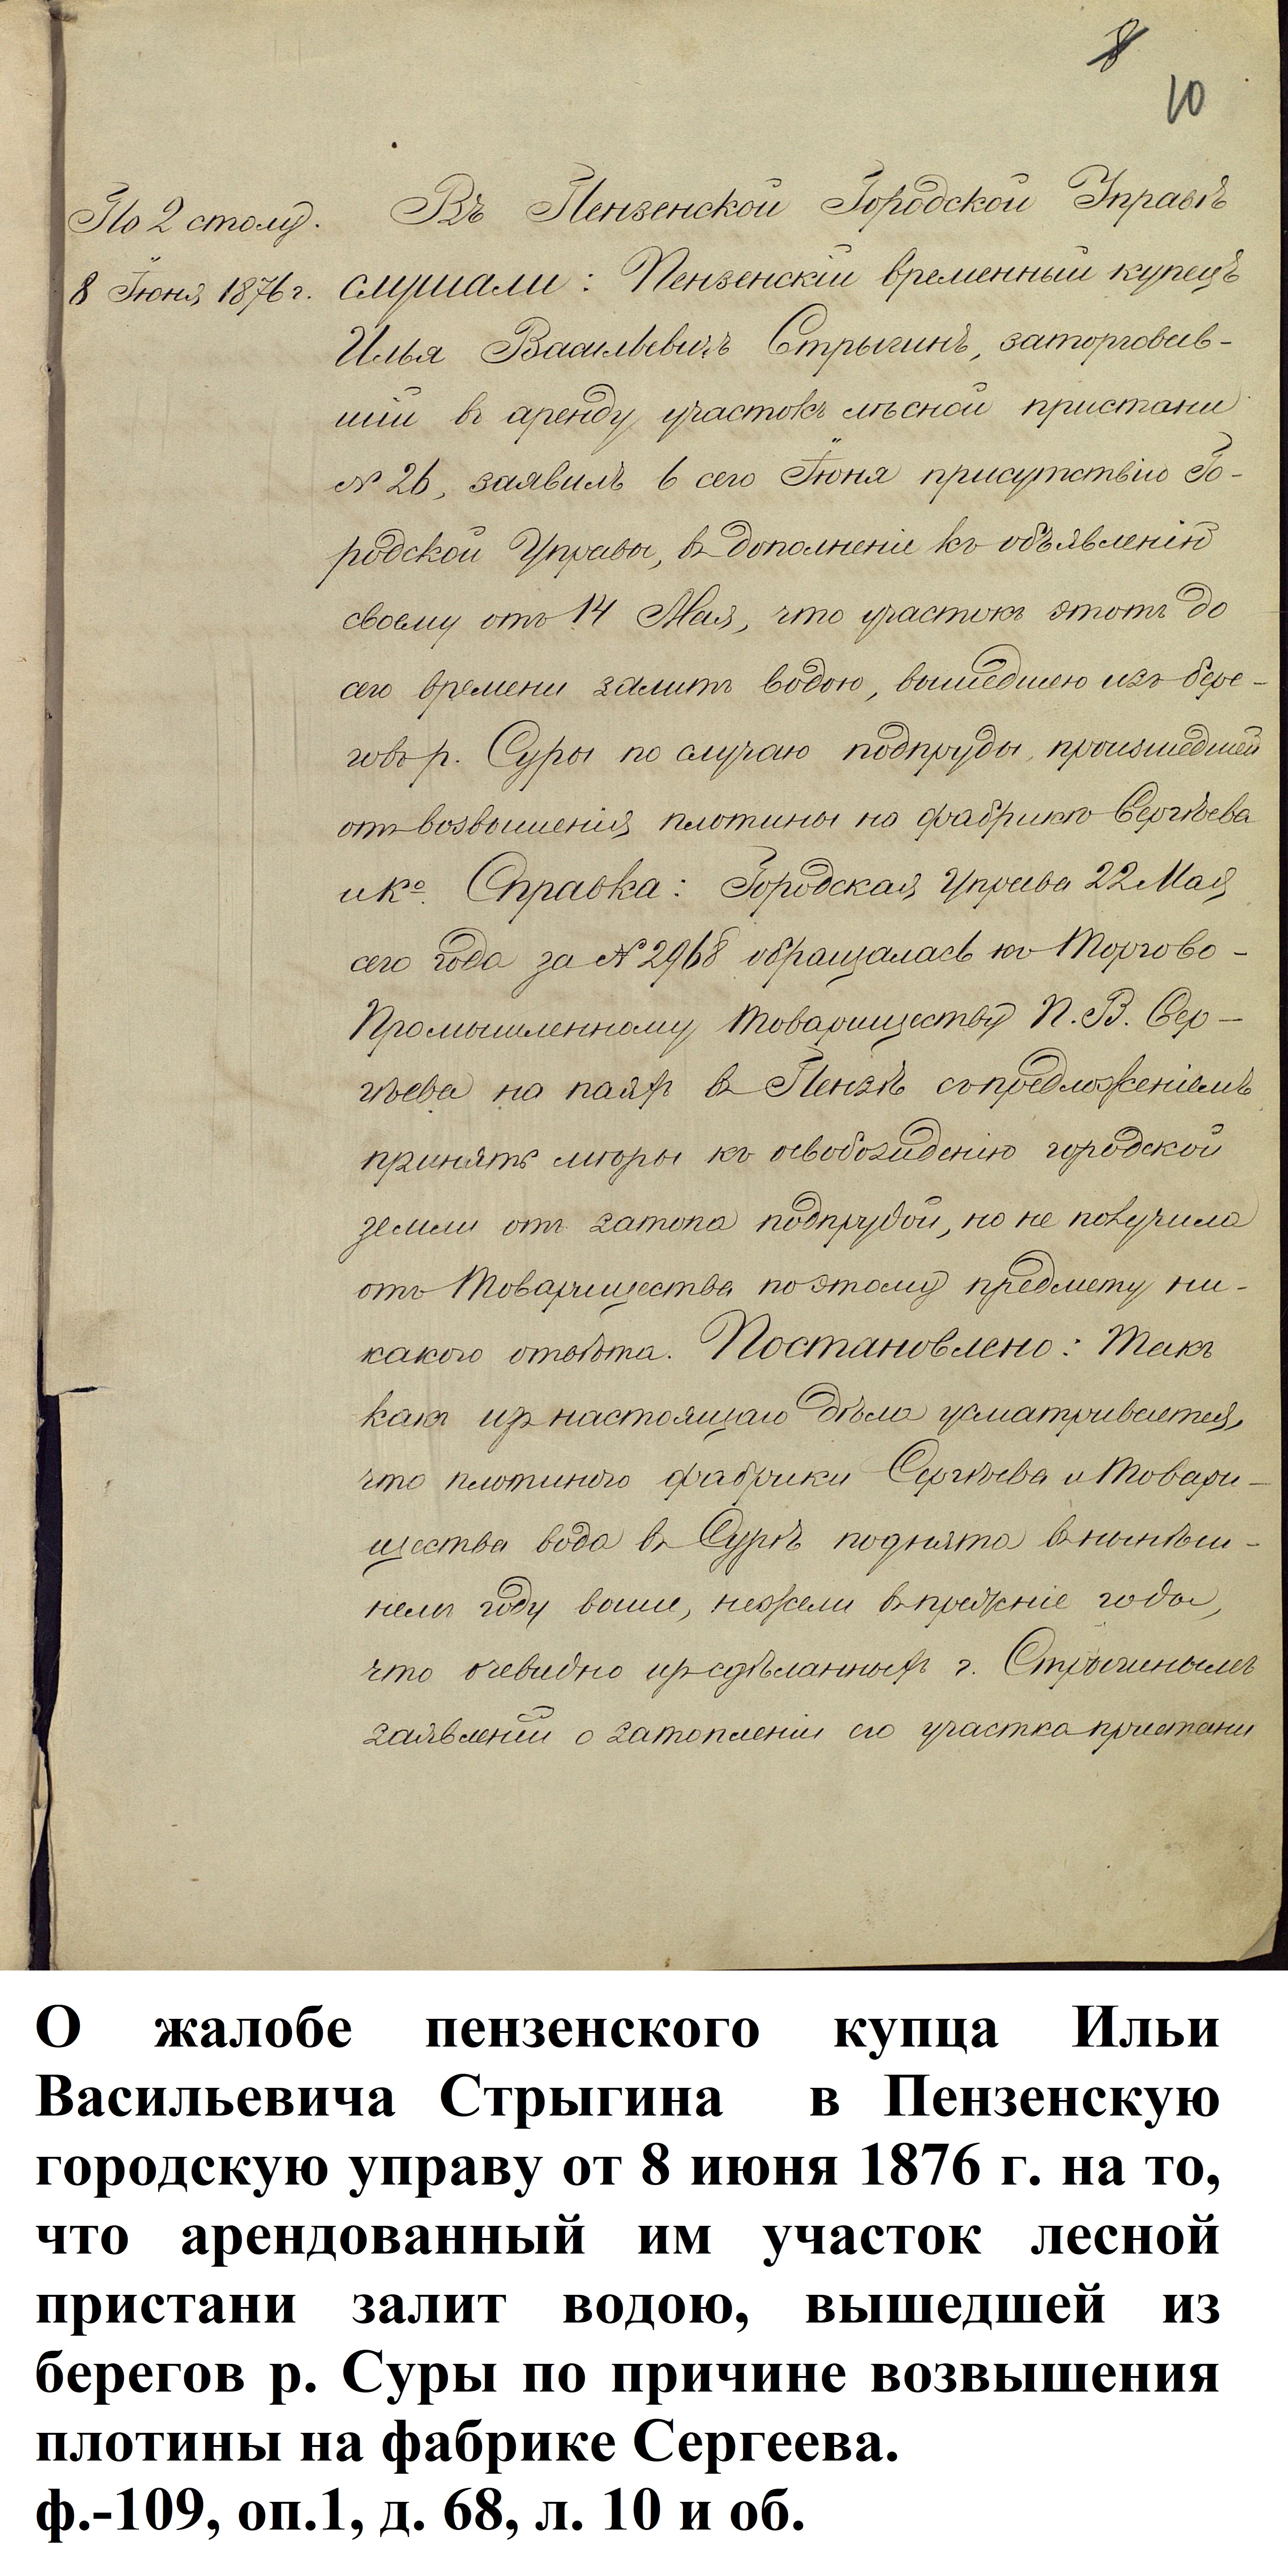 8
10
По 2 столу.
8 Іюня 1876 г.
Въ Пензенской Городской Управѣ
слушали: Пензенскій временный купецъ
Илья Васильевичъ Стрыгинъ, заторговав-
шій въ аренду участокъ лѣсной пристани
№ 26, заявилъ 6 сего Іюня присутствію Го-
родской Управы, въ дополненіе къ объявленію
своему отъ 14 Мая, что участокъ этотъ до
сего времени залитъ водою, вышедшею изъ бере-
говъ р. Суры по случаю подпруды, происшедшей
отъ возвышенія плотины на фабрикѣ Сергѣева
и Ко. Справка: Городская Управа 22 Мая
сего года за № 2968 обращалась къ Торгово-
Промышленному товариществу П. В. Сер-
гѣева на паяхъ въ Пензѣ съ предложеніемъ
принять мѣры къ освобожденію городской
земли отъ затопа подпрудой, но не получила
отъ Товарищества по этому предмету ни-
какого отвѣта. Постановлено: Такъ
какъ изъ настоящаго дѣла усматривается,
что плотиною фабрики Сергѣева и Товари-
щества вода въ Сурѣ поднята въ нынѣш-
немъ году выше, нежели въ прежніе годы,
что очевидно изъ сдѣланныхъ г. Стрыгинымъ
заявленій о затопленіи его участка пристани
О жалобе пензенского купца Ильи
Васильевича Стрыгина в Пензенскую
городскую управу от 8 июня 1876 г. на то,
что арендованный им участок лесной
пристани залит водою, вышедшей из
берегов р. Суры по причине возвышения
плотины на фабрике Сергеева.
ф.-109, оп.1, д. 68, л. 10 и об.